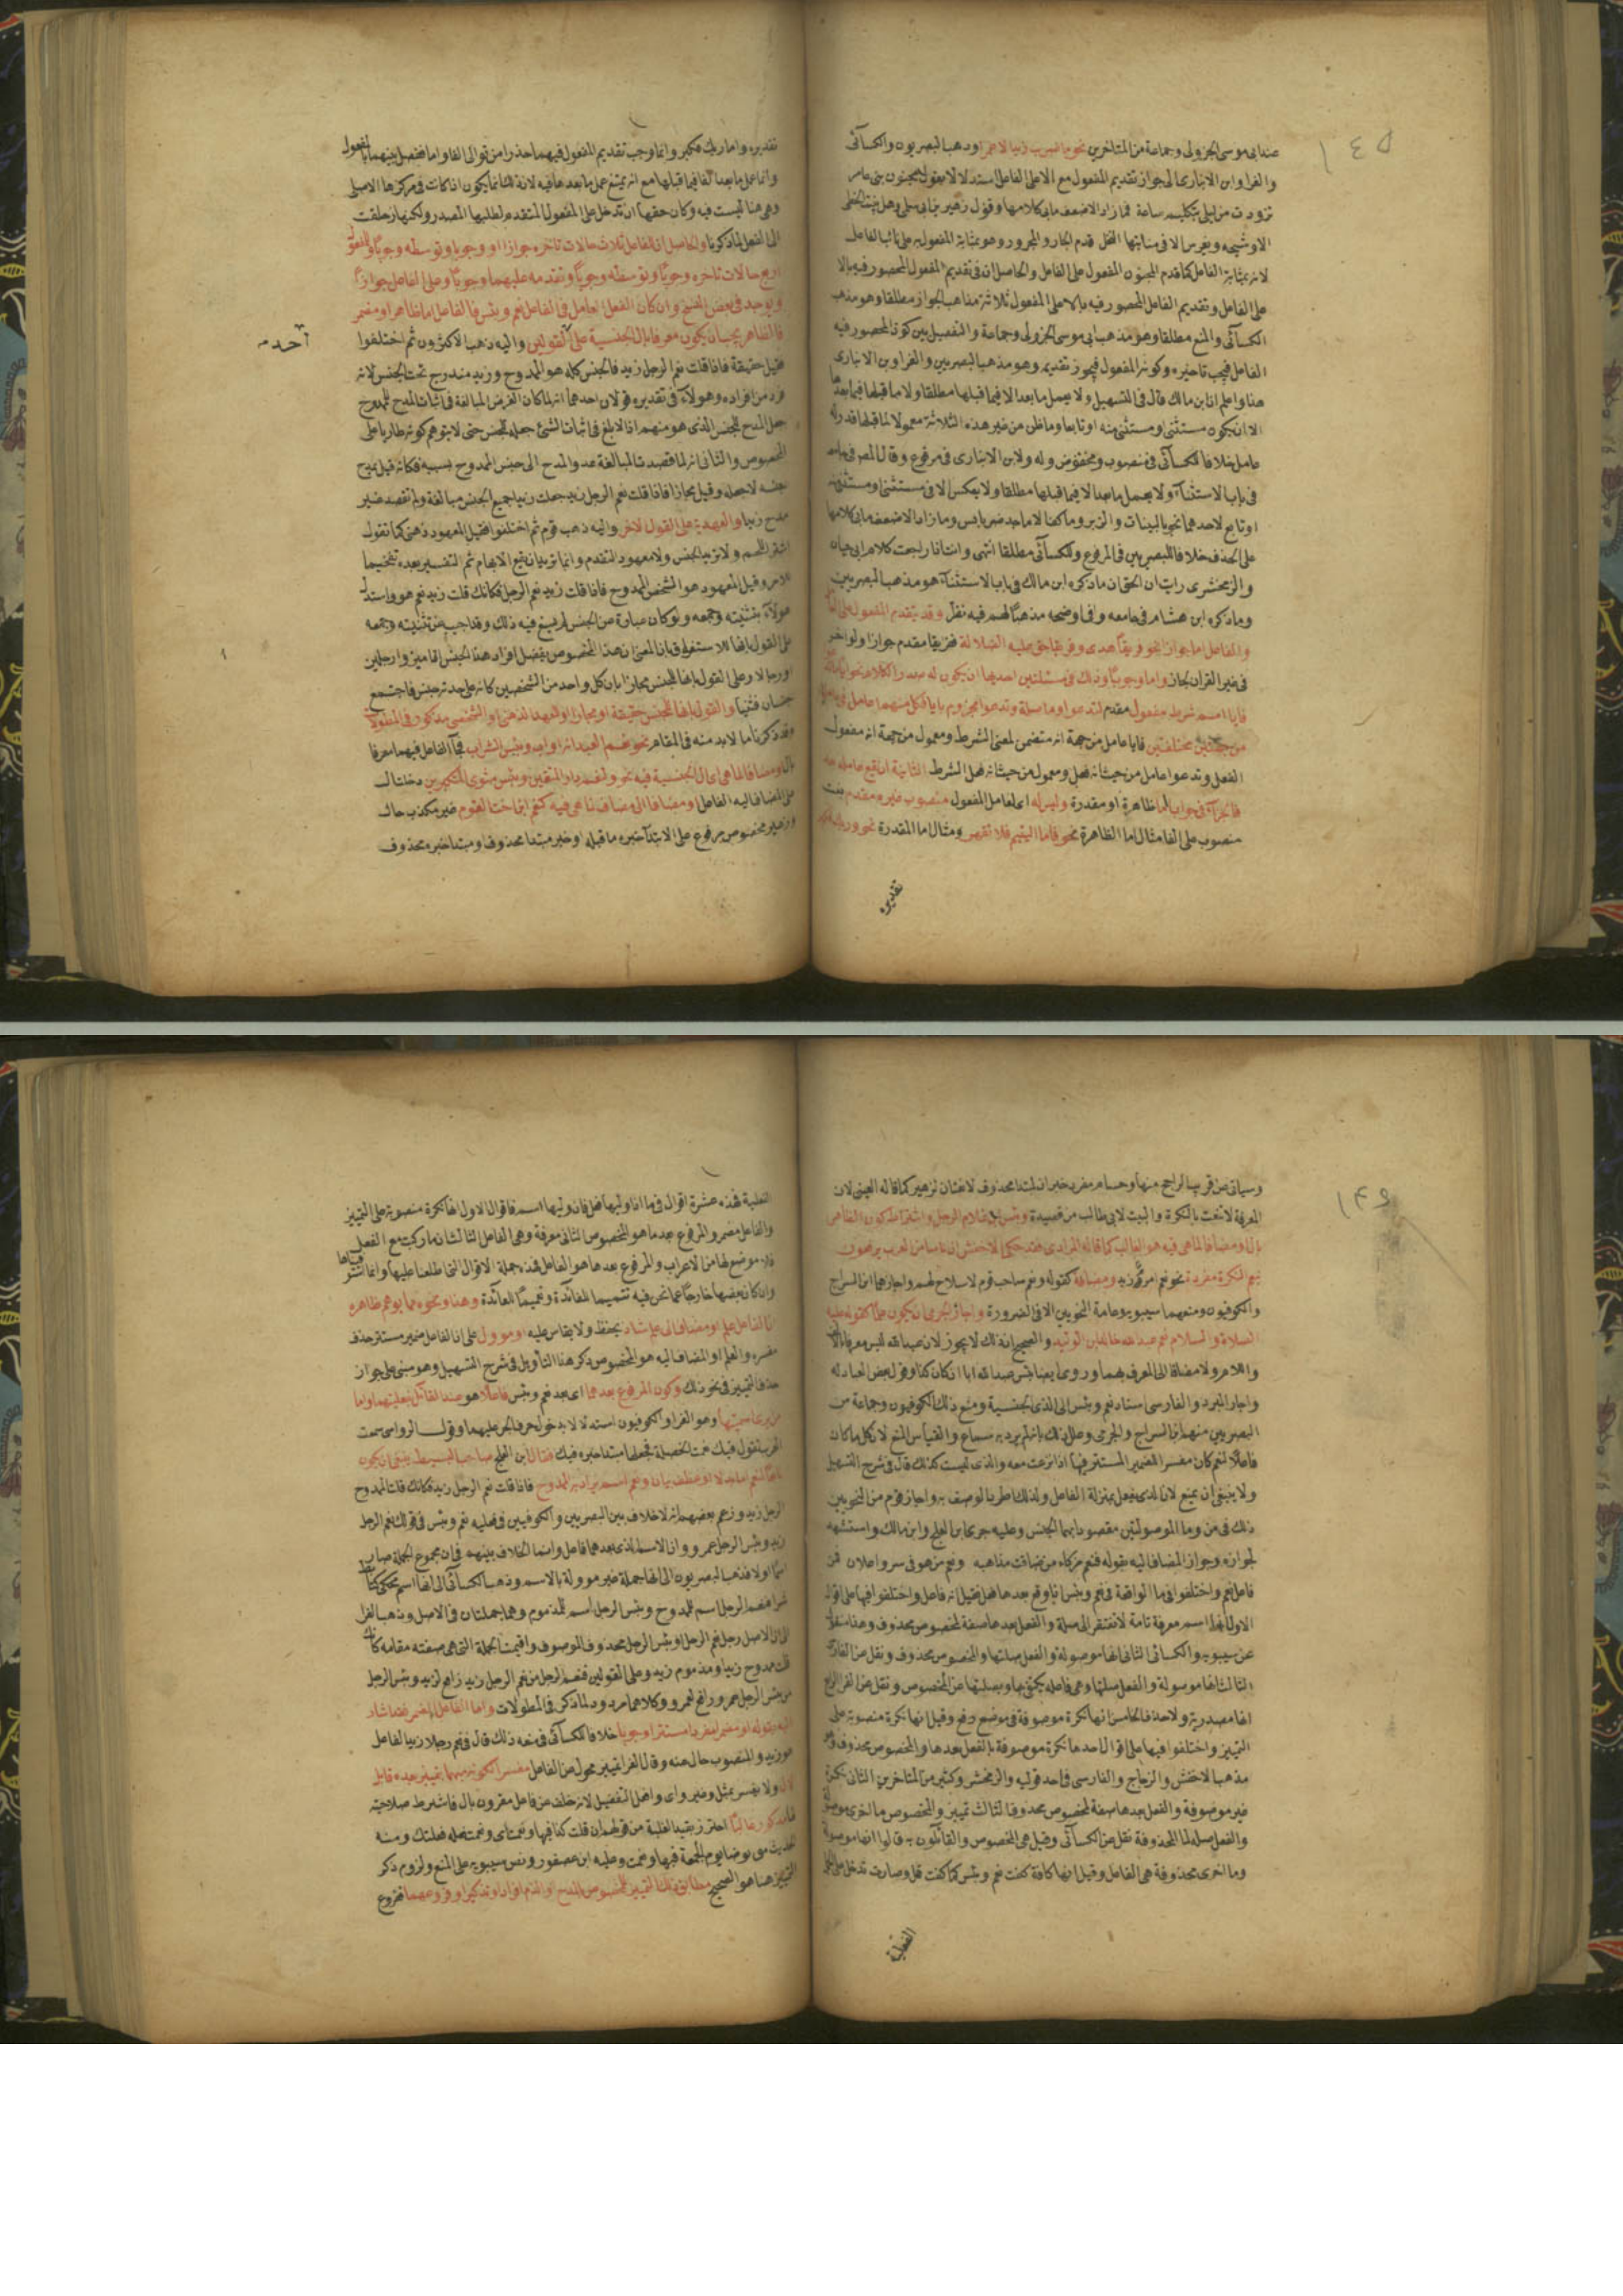 ١٤٥
عند ابى موسى الجزولى وجماعة من المتاخرين نحو ما ضرب زيدا الا عمرو وذهب البصريون والكسائى
والفرا وابن الانبارى الى جواز تقديم المفعول مع الا على الفاعل استدلالا بقول مجنون بنى عامر
تزودت من ليلى بتكليم ساعة فما زاد الا ضعف مابى كلامها وقول زهير
لانه بمثابة الفاعل كما قدم المجنون المفعول على الفاعل والحاصل ان فى تقديم المفعول المحصور فيه بالا
على الفاعل وتقديم الفاعل المحصور فيه بالا على المفعول ثلاثة مذاهب الجواز مطلقا وهو مذهب
الكسائى والمنع مطلقا وهو مذهب ابى موسى الجزولى وجماعة والتفصيل بين كونه المحصور فيه
الفاعل فيجب تاخيره وكونه المفعول فيجوز تقديمه وهو مذهب البصريين والفرا وبن الانبارى
هذا واعلم ان ابن مالك قال فى التسهيل ولا يعمل ما بعد الا فيما قبلها مطلقا ولا ما قبلها فيما بعدها
الا ان يكون مستثنى او مستثنى منه او تابعا وما ظن من غير هذه الثلاثة معمولا لما قبلها قدر له
عامل خلافا للكسائى فى منصوب ومخفوض وله ولابن الانبارى فى مرفوع وقال المص فى جامعه
فى باب الاستثناء ولا يعمل ما بعد الا فيما قبلها مطلقا ولا بعكس الا فى مستثنى او مستثنى منه
او تابع لاحدهما نحو بالبينات والزبر وما كفنا الا ماجد ضر بايس وما زاد الا ضعف مابى كلامها
على الحذف خلافا للبصريين فى المرفوع وللكسائى مطلقا انتهى وانت اذا راجعت كلام ابى حيان
والزمخشرى رايت ان الحق ان ما ذكره ابن مالك فى باب الاستثناء هو مذهب البصريين
وما ذكره ابن هشام فى جامعه وفى اوضحه مذهبا لهم فيه نظر وقد يتقدم المفعول على الفعل
والفاعل اما جوازا نحو فريقا هدى وفريقا حق عليه الضلالة ففريقا مقدم جوازا ولو اخر
فى غير القران لجاز واما وجوبا وذلك فى مسئلتين احديهما ان يكون له صدر الكلام نحو ايا ما تدعوا
فايا اسم شرط مفعول مقدم لتدعوا وما صلة وتدعوا مجزوم بايا فكل منهما عامل فى
من جهتين مختلفتين فايا عامل من جهة انه متضمن لمعنى الشرط ومعمول من جهة انه مفعول
الفعل وتدعوا عامل من حيث انه فعل ومعمول من حيث انه فعل الشرط الثانية ان يقع عامله بعد
فا الجزاء فى جواب اما ظاهرة او مقدرة وليس له اى لعامل المفعول منصوب غيره مقدم
منصوب على الفا مثال اما الظاهرة نحو فاما اليتيم فلا تقهر ومثال اما المقدرة نحو وربك
تقديره
تقديره واما ربك فكبر وانما وجب تقديم المفعول فيهما حذرا من توالى الفا واما ففصل بينهما بالمفعول
وانما عمل ما بعد الفا فيما قبلها مع انه يمتنع عمل ما بعدها فيه لان ذلك انما يكون اذا كانت فى مركزها الاصلى
وهى هنا ليست فيه وكان حقها ان تدخل على المفعول المتقدم لطلبها الصدر ولكنها زحلقت
الى الفعل لما ذكرنا والحاصل ان للفاعل ثلاث حالات تاخره جوازا او وجوبا وتوسطه وجوبا وللمفعول
اربع حالات تاخره وجوبا وتوسطه وجوبا وتقدمه عليهما وجوبا وعلى الفاعل جوازا
ويوجد فى بعض النسخ وان كان الفعل العامل فى الفاعل نعم وبئس فالفاعل اما ظاهر او مضمر
فالظاهر يجب ان يكون معرفا بال الجنسية على احد القولين واليه ذهب الاكثرون ثم اختلفوا
احد
فقيل حقيقة فاذا قلت نعم الرجل زيد فالجنس كله هو الممدوح وزيد مندرج تحت الجنس لانه
فرد من افراده وهولاء فى تقديره قولان احدهما انه لما كان الغرض المبالغة فى اثبات المدح للممدوح
جعل المدح للجنس الذى هو منهم اذ الابلغ فى اثبات الشئ جعله للجنس حتى لا يتوهم كونه طاريا على
المخصوص والثانى انه لما قصدت المبالغة عدوا المدح الى جنس الممدوح بسببه فكانه قيل مدح
جنسه لاجله وقيل مجازا فاذا قلت نعم الرجل زيد جعلت زيدا جميع الجنس مبالغة ولم تقصد غير
مدح زيد او العهدية على القول الاخر واليه ذهب قوم ثم اختلفوا فقيل المعهود ذهنى كما تقول
اشتر اللحم ولا تريد الجنس ولا معهود التقدم وانما تريد ان يقع الابهام ثم التفسير بعده تفخيما
للامر وقيل المعهود هو الشخص الممدوح فاذا قلت زيد نعم الرجل فكانك قلت زيد نعم هو واستدل
هولاء بتثنيته وجمعه ولو كان عبارة عن الجنس لم يسغ فيه ذلك وقد اجيب عن تثنيته وجمعه
على القول بانها للاستغراق بان المعنى ان هذا المخصوص يفضل افراد هذا الجنس اذا ميزوا رجلين
او رجالا وعلى القول بانها للجنس مجازا بان كل واحد من الشخصين كانه على حدته جنس فاجتمع
جنسان فثنيا والقول بانها للجنس حقيقة او مجازا او للعهد الذهنى او الشخصى مذكور فى المطولات
وقد ذكرنا ما لابد منه فى المقام نحو نعم العبد انه اواب وبئس الشراب فجا الفاعل فيهما معرفا
بال او مضافا لما هى اى ال الجنسية فيه نحو ولنعم دار المتقين وبئس مثوى المتكبرين دخلت ال
على المضاف اليه الفاعل او مضافا الى مضاف لما هى فيه كنعم ابن اخت القوم غير مكذب
وزهير مخصوص مرفوع على الابتدا خبره ما قبله او خبر مبتدا محذوف او مبتدا خبره محذوف
١٤٦
وسياتى عن قريب الراجح منها وحسام مفرد خبران لمبتدا محذوف لا نعتان لزهير كما قاله العينى لان
المعرفة لا تنعت بالنكرة والبيت لابى طالب من قصيدة وبئس غلام الرجل واشتراط كون الظاهر
بال او مضافا لما هى فيه هو الغالب كما قاله المرادى فقد حكى الاخفش ان ناسا من العرب يرفعون
بنعم النكرة مفردة نحو نعم امرؤ زيد ومضافة كقوله ونعم صاحب قوم لا سلاح لهم واجازهما ابن السراج
والكوفيون ومنعهما سيبويه وعامة النحويين الا فى الضرورة واجاز الجرمى ان يكون علما كقوله عليه
الصلاة والسلام نعم عبد الله خالد بن الوليد والصحيح ان ذلك لا يجوز لان عبد الله ليس معرفا بالالف
واللام ولا مضافا الى المعرف بهما
واجاز المبرد والفارسى اسناد نعم وبئس الى الذى الجنسية ومنع ذلك الكوفيون وجماعة من
البصريين منهم ابن السراج والجرمى وعلل ذلك بانه لم يرد به سماع والقياس المنع لان كل ما كان
فاعلا لنعم كان مفسرا للضمير المستتر فيها اذا نزعت منه والذى ليست كذلك قال فى شرح التسهيل
ولا ينبغى ان يمنع لان الذى يفعل بمنزلة الفاعل ولذلك اطرد الوصف به واجاز قوم من النحويين
ذلك فى من وما الموصولتين مقصودا بهما الجنس وعليه جرى ابن العلج وابن مالك واستشهد
لجوازه وجواز المضاف اليه بقوله فنعم مزكاء من ضاقت مذاهبه ونعم من هو فى سر واعلان فمن
فاعل نعم واختلفوا فى ما الواقعة فى نعم وبئس اذا وقع بعدها فعل فقيل انه فاعل واختلفوا فيها على اقوال
الاول انها اسم معرفة تامة لا تفتقر الى صلة والفعل بعدها صفة لمخصوص محذوف وهذا منقول
عن سيبويه والكسائى الثانى انها موصولة والفعل صلتها والمخصوص محذوف ونقل عن الفارسى
الثالث انها موصولة والفعل صلتها وهى فاعله يكتفى بها وبصلتها عن المخصوص ونقل عن الفرا الرابع
انها مصدرية ولا حذف الخامس انها نكرة موصوفة فى موضع رفع وقيل انها نكرة منصوبة على
التمييز واختلفوا فيها على اقوال احدها نكرة موصوفة بالفعل بعدها والمخصوص محذوف وهو
مذهب الاخفش والزجاج والفارسى فى احد قوليه والزمخشرى وكثير من المتاخرين الثانى نكرة
غير موصوفة والفعل بعدها صفة لمخصوص محذوف الثالث تمييز والمخصوص ما اخرى موصولة
والفعل صلة لما المحذوفة نقل عن الكسائى وقيل هى المخصوص والقائلون به قالوا انها موصولة
وما اخرى محذوفة هى الفاعل وقيل انها كافة كفت نعم وبئس كما كفت قل وصارت تدخل على الجمل
الفعلية
الفعلية فهذه عشرة اقوال فى ما اذا وليها فعل فان وليها اسم فاقوال الاول انها نكرة منصوبة على التمييز
والفاعل مضمر والمرفوع بعدها هو المخصوص الثانى معرفة وهى الفاعل الثالث ان ما ركبت مع الفعل
فلا موضع لها من الاعراب والمرفوع بعدها هو الفاعل فهذه جملة الاقوال التى اطلعنا عليها وانما
وان كان بعضها خارجا عما نحن فيه تتميما للفائدة وتعميما للعائدة وهذا ونحوه مما يوهم ظاهره
ان الفاعل علم او مضاف الى علم شاذ يحفظ ولا يقاس عليه او موول على ان الفاعل ضمير مستتر حذف
مفسره والعلم او المضاف اليه هو المخصوص ذكر هذا التأويل فى شرح التسهيل وهو مبنى على جواز
حذف التمييز فى نحو ذلك وكون المرفوع بعدهما اى بعد نعم وبئس فاعلا هو عند القائل بفعليتهما واما
من يرى اسميتها وهو الفرا والكوفيون استدلالا بدخول حرف الجر عليهما وقول الرواسى سمعت
العرب تقول فيك نعمت الخصلة فجعلها مبتدا خبره فيك فقال ابن العلج صاحب البسيط ينبغى ان يكون
تابعا لنعم اما بدلا او عطف بيان ونعم اسم يراد به الممدوح فاذا قلت نعم الرجل زيد فكانك قلت الممدوح
الرجل زيد وزعم بعضهم انه لا خلاف بين البصريين والكوفيين فى فعلية نعم وبئس فى قولك نعم الرجل
زيد وبئس الرجل عمرو وان الاسم الذى بعدهما فاعل وانما الخلاف بينهم فى ان مجموع الجملة صار
اسما اولا فذهب البصريون الى انها جملة غير موولة بالاسم وذهب الكسائى الى انها اسم محكى كتابط
شرا فنعم الرجل اسم للممدوح وبئس الرجل اسم للمذموم وهما جملتان فى الاصل وذهب الفرا
الى ان الاصل رجل نعم الرجل او بئس الرجل فحذف الموصوف واقيمت الجملة التى هى صفته مقامه كانك
قلت ممدوح زيد او مذموم زيد وعلى القولين فنعم الرجل من نعم الرجل زيد رافع لزيد وبئس الرجل
من بئس الرجل عمرو رافع لعمرو وكلاهما مردود لما ذكر فى المطولات واما الفاعل المضمر فقد اشار
اليه بقوله او مضمرا مفردا مستترا وجوبا خلافا للكسائى فى منعه ذلك قال فى نعم رجلا زيد الفاعل
هو زيد والمنصوب حال عنه وقال الفرا تمييز محول عن الفاعل مفسرا لكونه مبهما بتمييز بعده قابل
لال ولا يفسر بمثل وغير واى وافعل التفضيل لانه خلف عن فاعل مقرون بال فاشترط صلاحيته
لها مذكور غالبا احترز بقيد الغلبة من قولهم ان قلت كذا فبها ونعمت اى ونعمت فعله فعلتك ومنه
الحديث من توضا يوم الجمعة فبها ونعمت وعليه ابن عصفور ونص سيبويه على المنع ولزوم ذكر
التمييز هنا هو الصحيح مطابق ذلك التمييز للمخصوص بالمدح او الذم افرادا وتذكيرا وفروعهما ففروع